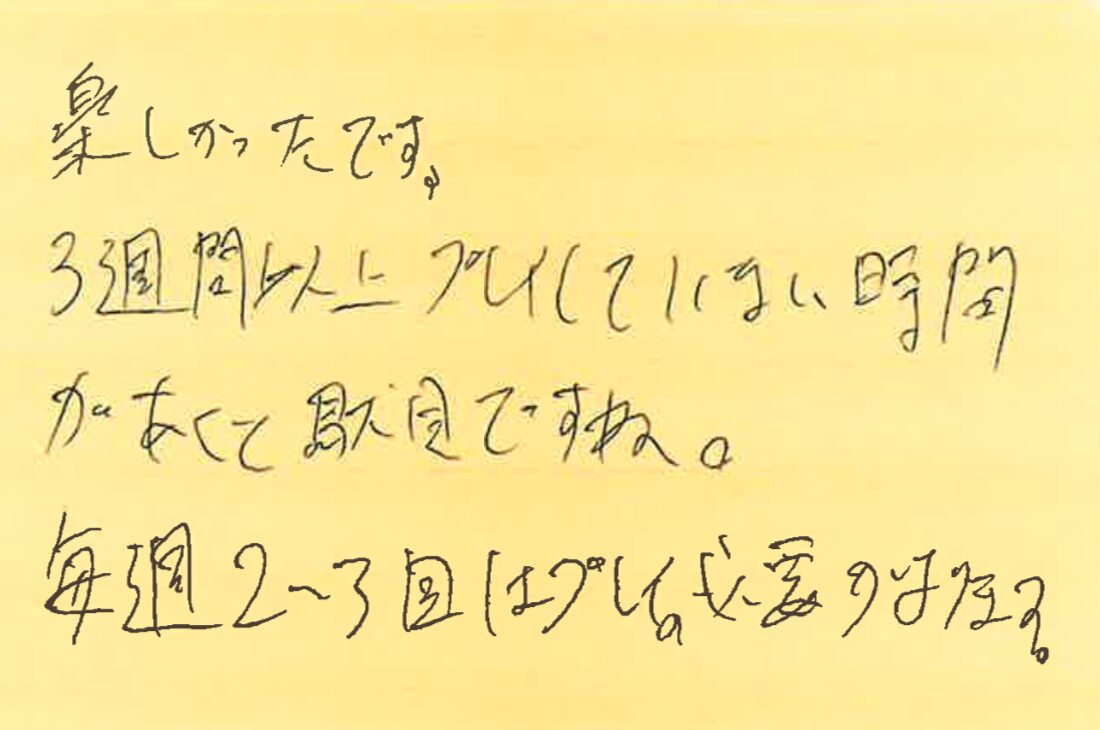 楽しかったです。
3週間以上プレイしていない時間
があくと駄目ですね。
毎週2〜3回はプレイ必要